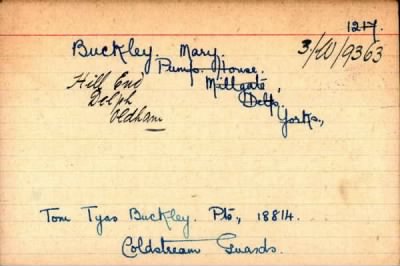 1217.
Buckley. Mary. 3/KW/9363
Pump House.
Hill End Millgate,
Delph Delph.
Oldham Yorks.,
Tom Tyas Buckley. Pte, 18814.
Coldstream Guards.